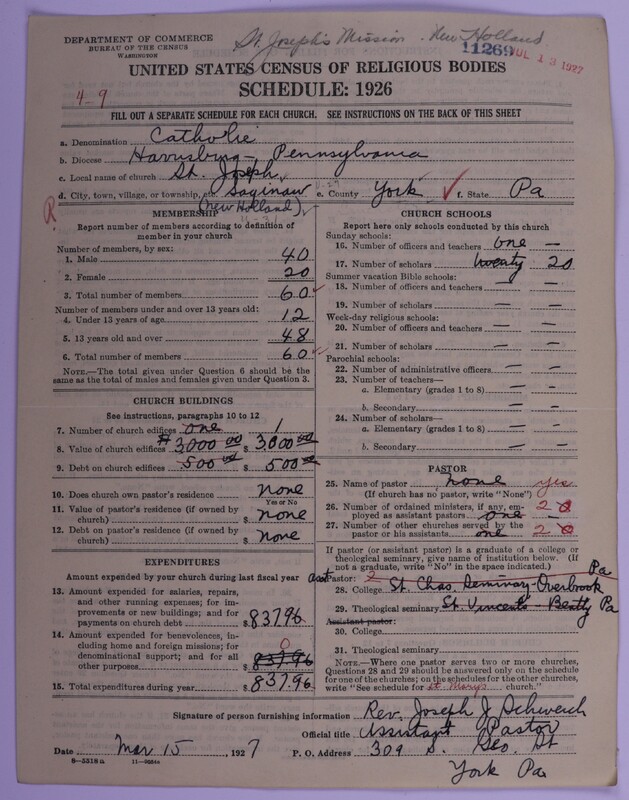 DEPARTMENT OF COMMERCE
BUREAU OF THE CENSUS
WASHINGTON
St. Joseph's Mission - New Holland
11269
JUL 13 1927
UNITED STATES CENSUS OF RELIGIOUS BODIES
SCHEDULE: 1926
4-9
FILL OUT A SEPARATE SCHEDULE FOR EACH CHURCH. SEE INSTRUCTIONS ON THE BACK OF THIS SHEET
a. Denomination Catholic
b. Diocese Harrisburg - Pennsylvania
c. Local name of church St. Joseph
d. City, town, village, or township, etc. Saginaw e. County York f. State Pa
(New Holland)
R
MEMBERSHIP
Report number of members according to definition of member in your church
Number of members, by sex:
1. Male 40
2. Female 20
3. Total number of members 60
Number of members under and over 13 years old:
4. Under 13 years of age 12
5. 13 years old and over 48
6. Total number of members 60
NOTE.—The total given under Question 6 should be the same as the total of males and females given under Question 3.
CHURCH BUILDINGS
See instructions, paragraphs 10 to 12
7. Number of church edifices one 1
8. Value of church edifices # 3000 00 $ 3,000 00
9. Debt on church edifices 500 00 $ 500 00
10. Does church own pastor's residence none
Yes or No
11. Value of pastor's residence (if owned by church) $ none
12. Debt on pastor's residence (if owned by church) $ none
EXPENDITURES
Amount expended by your church during last fiscal year
13. Amount expended for salaries, repairs, and other running expenses; for improvements or new buildings; and for payments on church debt $ 837.96
14. Amount expended for benevolences, including home and foreign missions; for denominational support; and for all other purposes $ 837.96 0
15. Total expenditures during year $ 837.96
CHURCH SCHOOLS
Report here only schools conducted by this church
Sunday schools:
16. Number of officers and teachers one —
17. Number of scholars twenty 20
Summer vacation Bible schools:
18. Number of officers and teachers — —
19. Number of scholars — —
Week-day religious schools:
20. Number of officers and teachers — —
21. Number of scholars — —
Parochial schools:
22. Number of administrative officers — —
23. Number of teachers—
a. Elementary (grades 1 to 8) — —
b. Secondary — —
24. Number of scholars—
a. Elementary (grades 1 to 8) — —
b. Secondary — —
PASTOR
25. Name of pastor none yes
(If church has no pastor, write "None")
26. Number of ordained ministers, if any, employed as assistant pastors one 2 0
27. Number of other churches served by the pastor or his assistants one 2 0
If pastor (or assistant pastor) is a graduate of a college or theological seminary, give name of institution below. (If not a graduate, write "No" in the space indicated.)
asst Pastor: 2
28. College St. Chas. Seminary-Overbrook Pa
29. Theological seminary St. Vincents - Beatty Pa
Assistant pastor:
30. College
31. Theological seminary
NOTE.—Where one pastor serves two or more churches, Questions 28 and 29 should be answered only on the schedule for one of the churches; on the schedules for the other churches, write "See schedule for St Mary's church."
Signature of person furnishing information Rev. Joseph J Schweich
Official title Assistant Pastor
Date Mar 15 1927 P. O. Address 309 S. Geo. St
York Pa
8-5518a 11-9024a